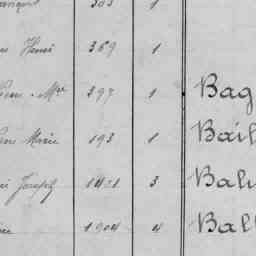 303 1
Henri 369 1
Mie 397 1 Bag
Marie 193 1 Bail
Joseph 1421 3 Balu
1904 4 Ball